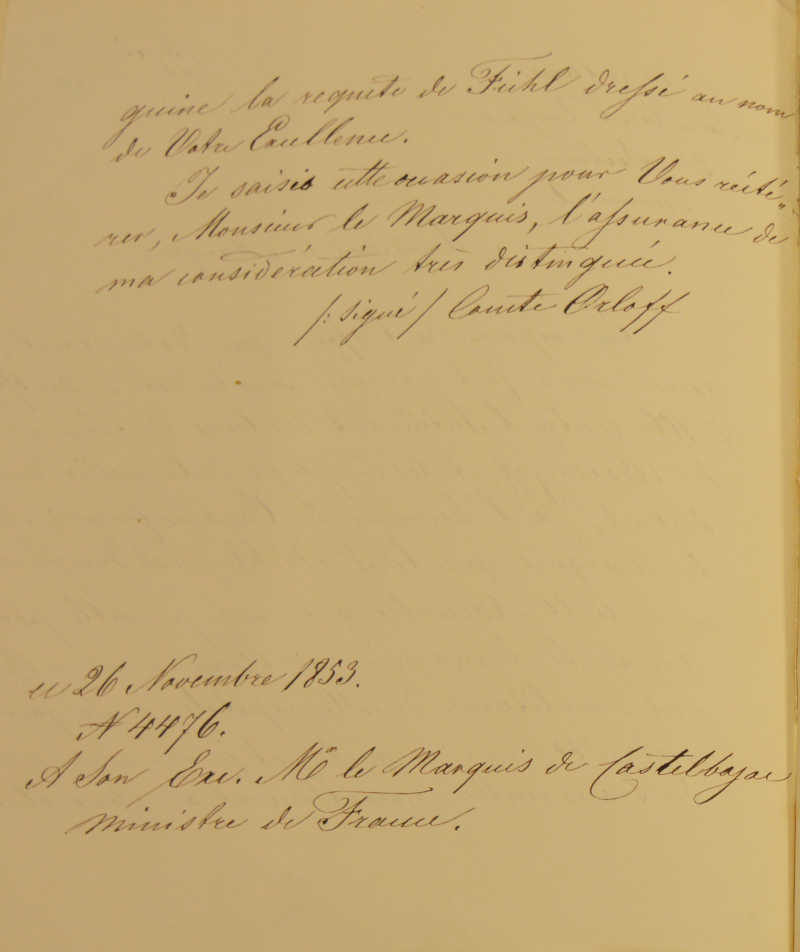 quine la requête de Fühl dressé au nom
de Votre Excellence.
Je saisis cette occasion pour Vous réité„
rer, Monsieur le Marquis, l'assurance de
ma considération très distinguée.
/: signé / Comte Orloff
ce 26 Novembre 1853.
N 4476.
A Son Exc. Mr le Marquis de Castelbajac
ministre de France.